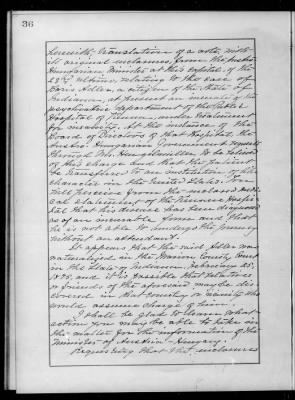 36
herewith, translation of a note, with
its original inclosures, from the Austro-
Hungarian Minister at this capital, of the
23rd ultimo, relating to the case of
Boris Adler, a citizen of the State of
Indiana, at present an inmate of the
psychiatric department of the Public
Hospital of Vienna, under treatment
for insanity. At the instance of the
Board of Directors of that Hospital, the
Austro Hungarian Government requests
through Mr. Hengelmüller to be relieved
of this charge and that the patient
be transferred to an institution of like
character in the United States. You
will perceive from the inclosed medi-
cal statement of the Vienna Hospi-
tal that his disease has been diagnosed
as of an incurable form and that
he is not able to undergo the journey
without an attendant.
It appears that the said Adler was
naturalized in the Marion County Court
in the State of Indiana, February 25,
and it is possible that relatives
or friends of the aforesaid may be dis-
covered in that county or vicinity who
would assume charge of him.
I shall be glad to learn what
action you may be able to take in
the matter for the information of the
Minister of Austria-Hungary.
Requesting that the inclosures